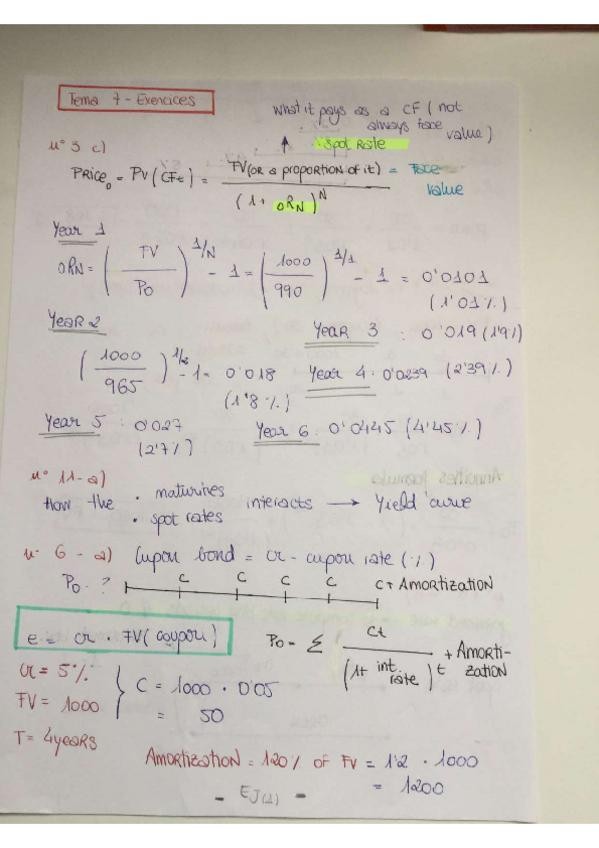 Tema 7 - Exercices
What it pays as a CF (not
always face
value)
nº 5 c)
↑ Spot Rate
Price₀ = PV (CFt) = FV (OR a proportion of it) / (1 + 0RN)^N = Face value
Year 1
0RN = (FV / P0)^1/N - 1 = (1000 / 990)^1/1 - 1 = 0'0101
(1'01%)
Year 2
Year 3 : 0'019 (1'9%)
(1000 / 965)^1/2 - 1 = 0'018
(1'8%)
Year 4 : 0'0239 (2'39%)
Year 5 : 0'027
(2'7%)
Year 6 : 0'0445 (4'45%)
nº 11-a)
How the • maturities interacts → Yield curve
• spot rates
nº 6 - a) Cupon bond = cr - cupon rate (%)
P0 = ? C C C C C + Amortization
c = cr · FV (coupon)
P0 = Σ Ct / (1 + int. rate)^t + Amorti-
zation
cr = 5%
FV = 1000
T = 4 years
C = 1000 · 0'05
= 50
Amortization = 120% OF FV = 1'2 · 1000
= 1200
- EJ(1) -